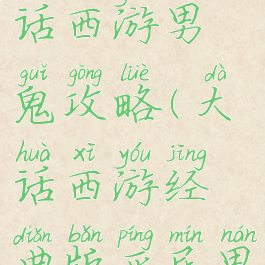 话西游男
guǐ gōng lüè dà
鬼攻略(大
huà xī yóu jīng
话西游经
diǎn bǎn píng mín nán
典版平民男